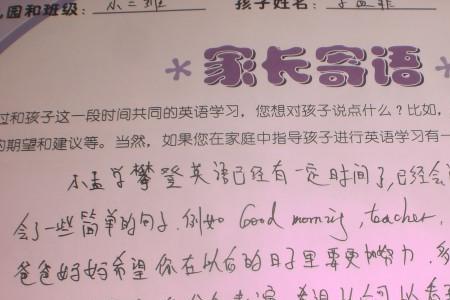 儿园和班级: 小二班 孩子姓名:
家长寄语
过和孩子这一段时间共同的英语学习，您想对孩子说点什么？比如，
的期望和建议等。当然，如果您在家庭中指导孩子进行英语学习有一
小孟 攀登英语已经有一定时间了,已经会
会了一些简单的句子,例如 Good morning, teacher,
爸爸妈妈希望你在以后的日子里要更加努力